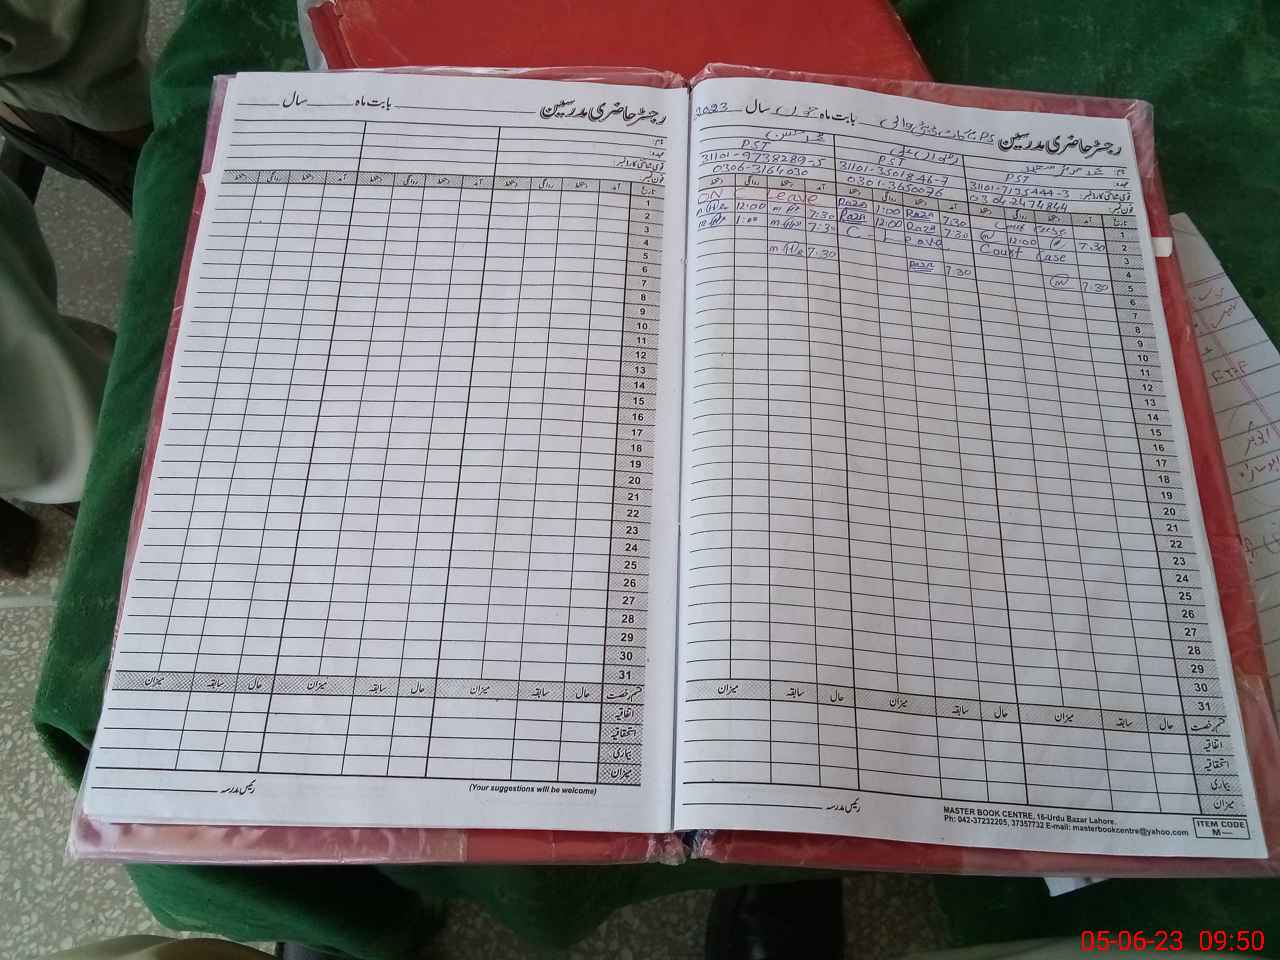 رجسٹر حاضری مدرسین بابت ماہ سال
نام:
عہدہ:
قومی شناختی کارڈ نمبر:
فون نمبر:
تاریخ آمد دستخط روانگی دستخط آمد دستخط روانگی دستخط آمد دستخط روانگی دستخط
1
2
3
4
5
6
7
8
9
10
11
12
13
14
15
16
17
18
19
20
21
22
23
24
25
26
27
28
29
30
31
قسم رخصت حال سابقہ میزان حال سابقہ میزان حال سابقہ میزان
اتفاقیہ
استحقاقیہ
بیماری
میزان
رئیس مدرسہ
(Your suggestions will be welcome)
رجسٹر حاضری مدرسین PS بابت ماہ جون سال 2023
نام: محمد
عہدہ: PST PST PST
قومی شناختی کارڈ نمبر: 31101-7195444-3 31101-3501846-7 31101-9738289-5
فون نمبر: 03042474844 0301-3650076 0306-3164030
تاریخ آمد دستخط روانگی دستخط آمد دستخط روانگی دستخط آمد دستخط روانگی دستخط
1 7:30 Raza 1:00 Raza ON C Leave
2 7:30 12:00 7:30 Raza 12:00 Raza 7:30 12:00
3 Court Case C Leave 7:30 1:00
4
5 7:30 7:30 Raza 7:30
6
7
8
9
10
11
12
13
14
15
16
17
18
19
20
21
22
23
24
25
26
27
28
29
30
31
قسم رخصت حال سابقہ میزان حال سابقہ میزان حال سابقہ میزان
اتفاقیہ
استحقاقیہ
بیماری
میزان
رئیس مدرسہ
MASTER BOOK CENTRE, 16-Urdu Bazar Lahore.
Ph: 042-37232205, 37357732 E-mail: masterbookcentre@yahoo.com
ITEM CODE
M—
05-06-23 09:50